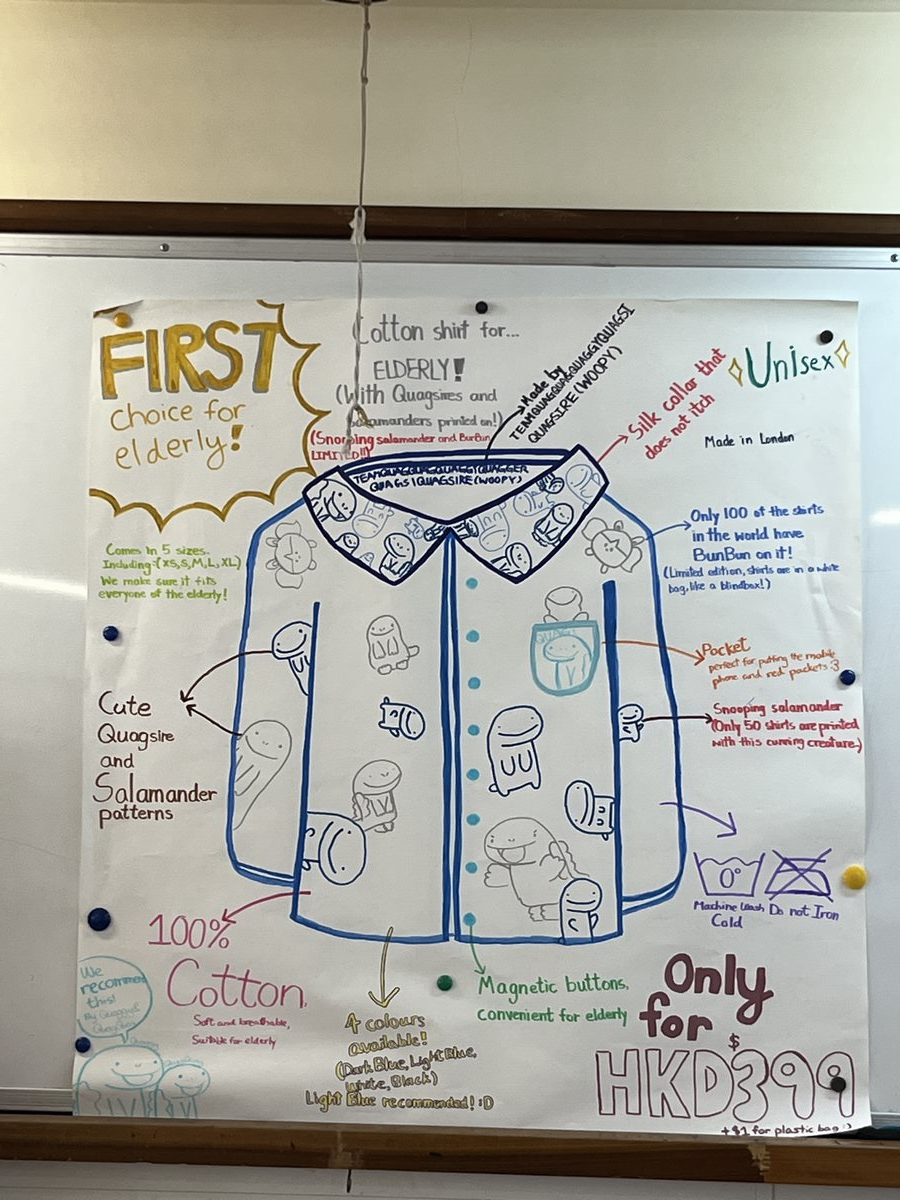 FIRST
Choice for
elderly!
Cotton shirt for...
ELDERLY!
(With Quagsires and
Salamanders printed on!)
(Snooping salamander and BunBun
LIMITED!!)
Made by
QUAGSIRE (WOOPY)
Silk collar that
does not itch
Unisex
Made in London
QUAGSIQUAGSIRE (WOOPY)
Only 100 of the shirts
in the world have
BunBun on it!
(Limited edition, shirts are in a white
bag, like a blindbox!)
Comes in 5 sizes.
Including:(XS,S,M,L,XL)
We make sure it fits
everyone of the elderly!
Pocket
perfect for putting the mobile
phone and red packets :3
Cute
Quagsire
and
Salamander
patterns
Snooping salamander
(Only 50 shirts are printed
with this cunning creature.)
0°
Machine Wash
Cold
Do not Iron
100%
Cotton.
Soft and breathable,
Suitable for elderly
We
recommend
this!
4 colours
available!
(Dark Blue, Light Blue,
White, Black)
Light Blue recommended! :D
Magnetic buttons,
convenient for elderly
Only
for
$
HKD399
+$1 for plastic bag :)